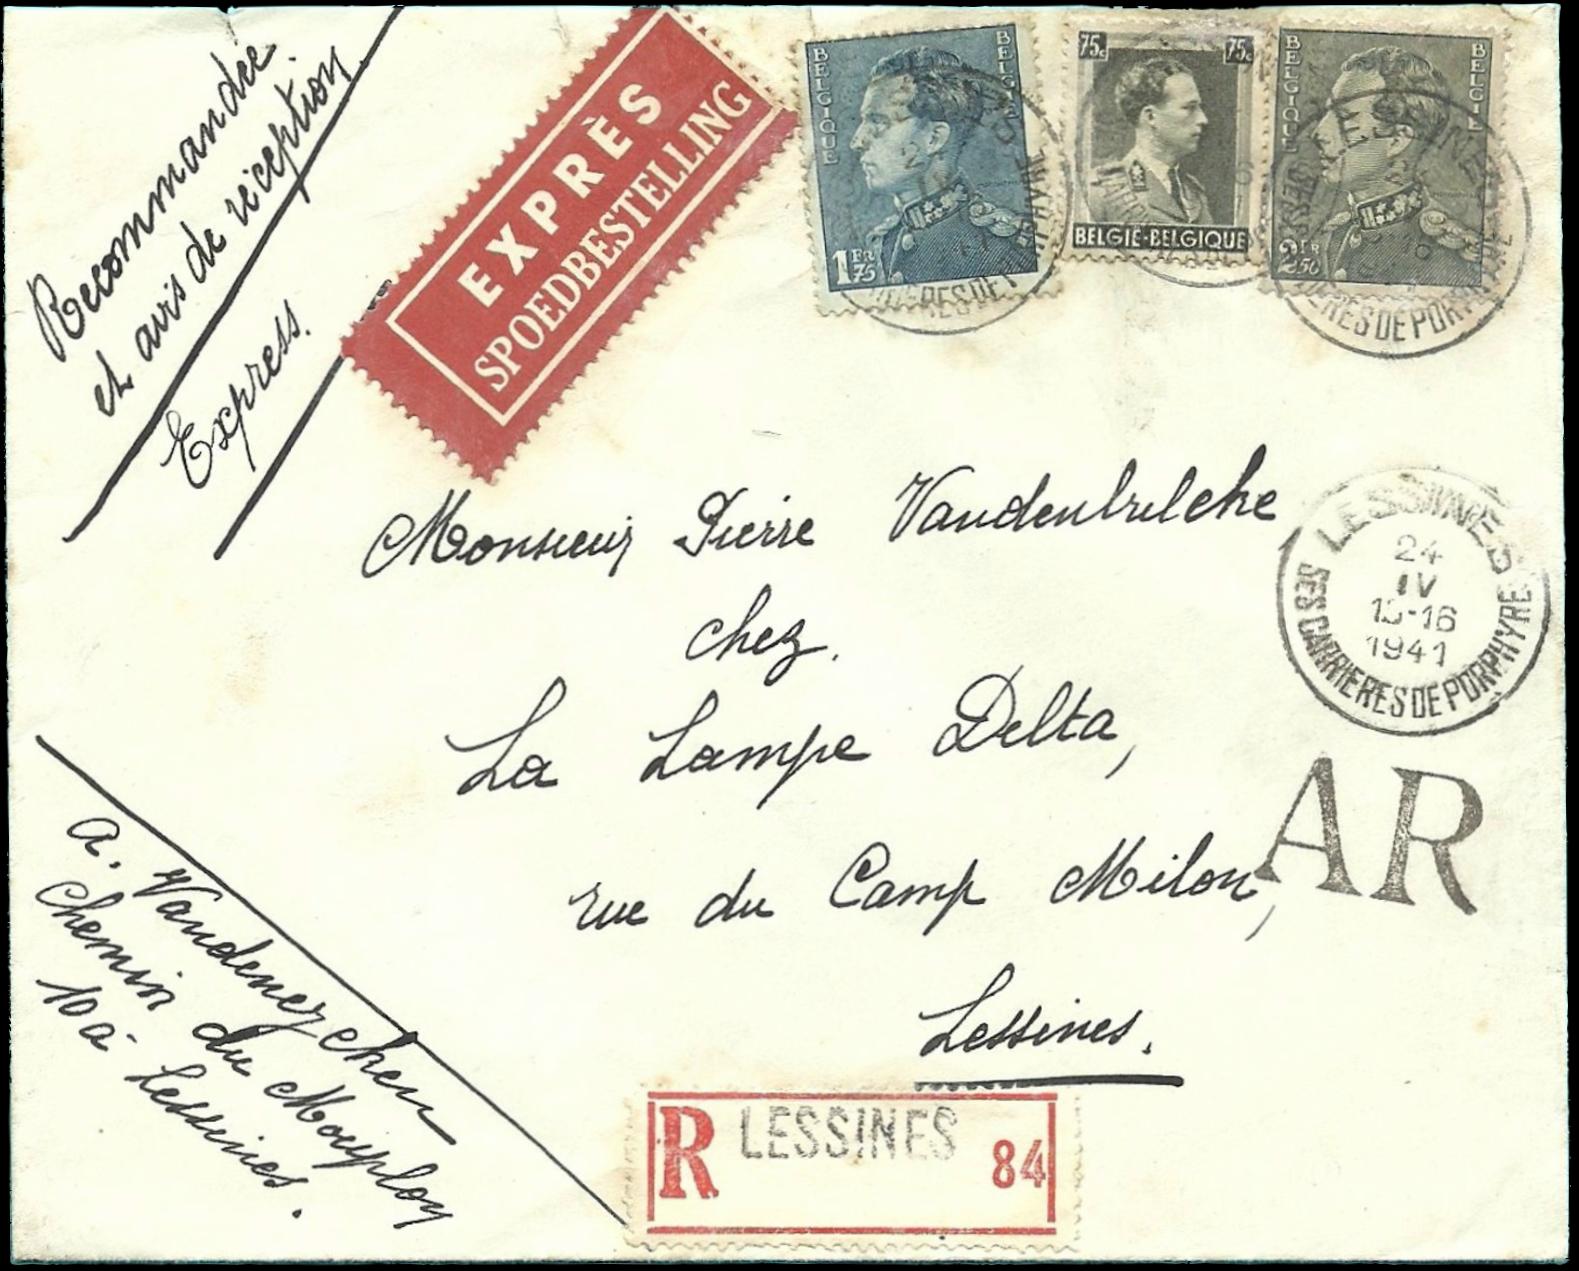 Recommandée
et avis de réception
Express.
EXPRÈS
SPOEDBESTELLING
BELGIQUE BELGIË
1FR 75
75c 75c
BELGIË-BELGIQUE
BELGIQUE BELGIË
2FR 50
LESSINES
24
IV
1941
DES CARRIERES DE PORPHYRE
Monsieur Pierre
chez.
La Lampe Delta,
rue du Camp Milon,
Lessines.
AR
A.
Chemin du Mouplon
10a Lessines.
R LESSINES 84